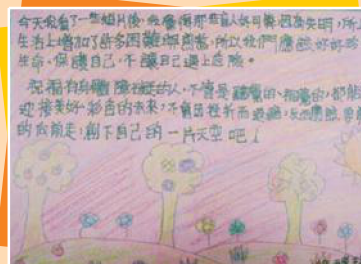 今天观看了一些短片後,我覺得那些盲人好可憐,因為失明,所
生活上增加了許多困難與危險,所以我們應該好好珍
生命,保護自己,不讓自己遇上危險。
祝福有身體障礙的人,不管是聽障的、視障的,都能
迎接美好、彩色的未來,不會因挫折而退縮,反而應該勇
的向前走,創下自己的一片天空吧!